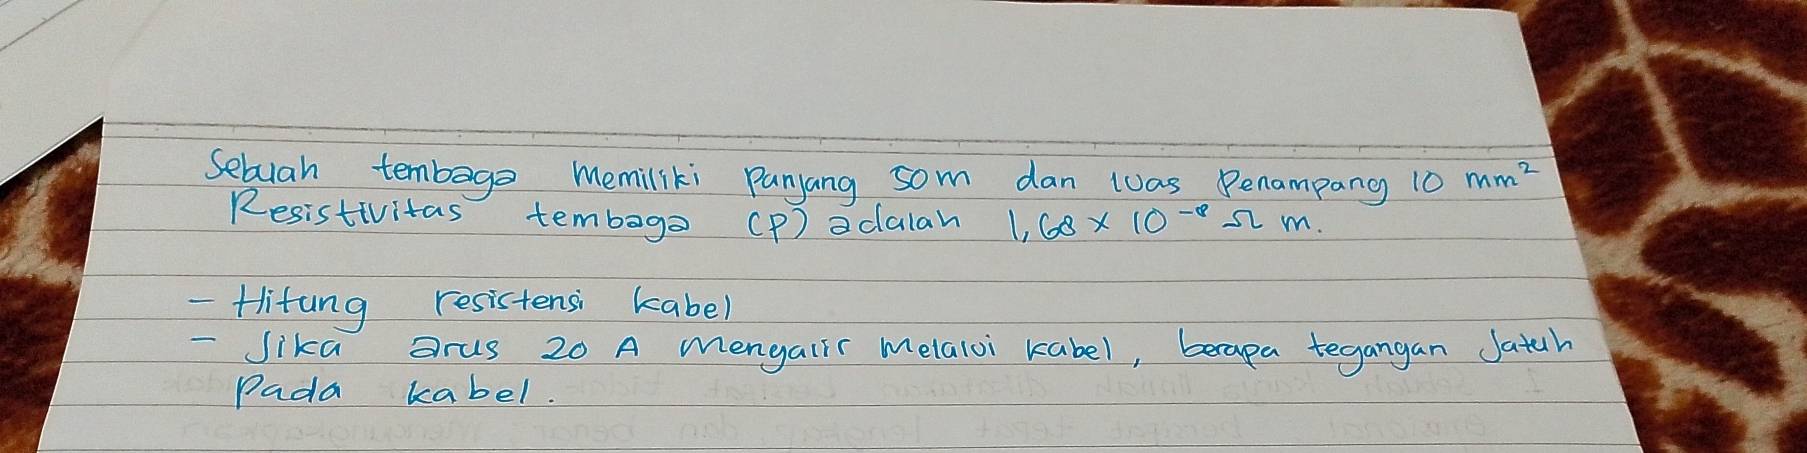 Sebuah tembaga memiliki panjang 50m dan luas Penampang 10 mm²
Resistivitas tembaga (ρ) adalah 1,68 × 10⁻⁸ Ω m.
- Hitung resistensi kabel
- Jika arus 20 A mengalir melalui kabel, berapa tegangan Jatuh
Pada kabel.